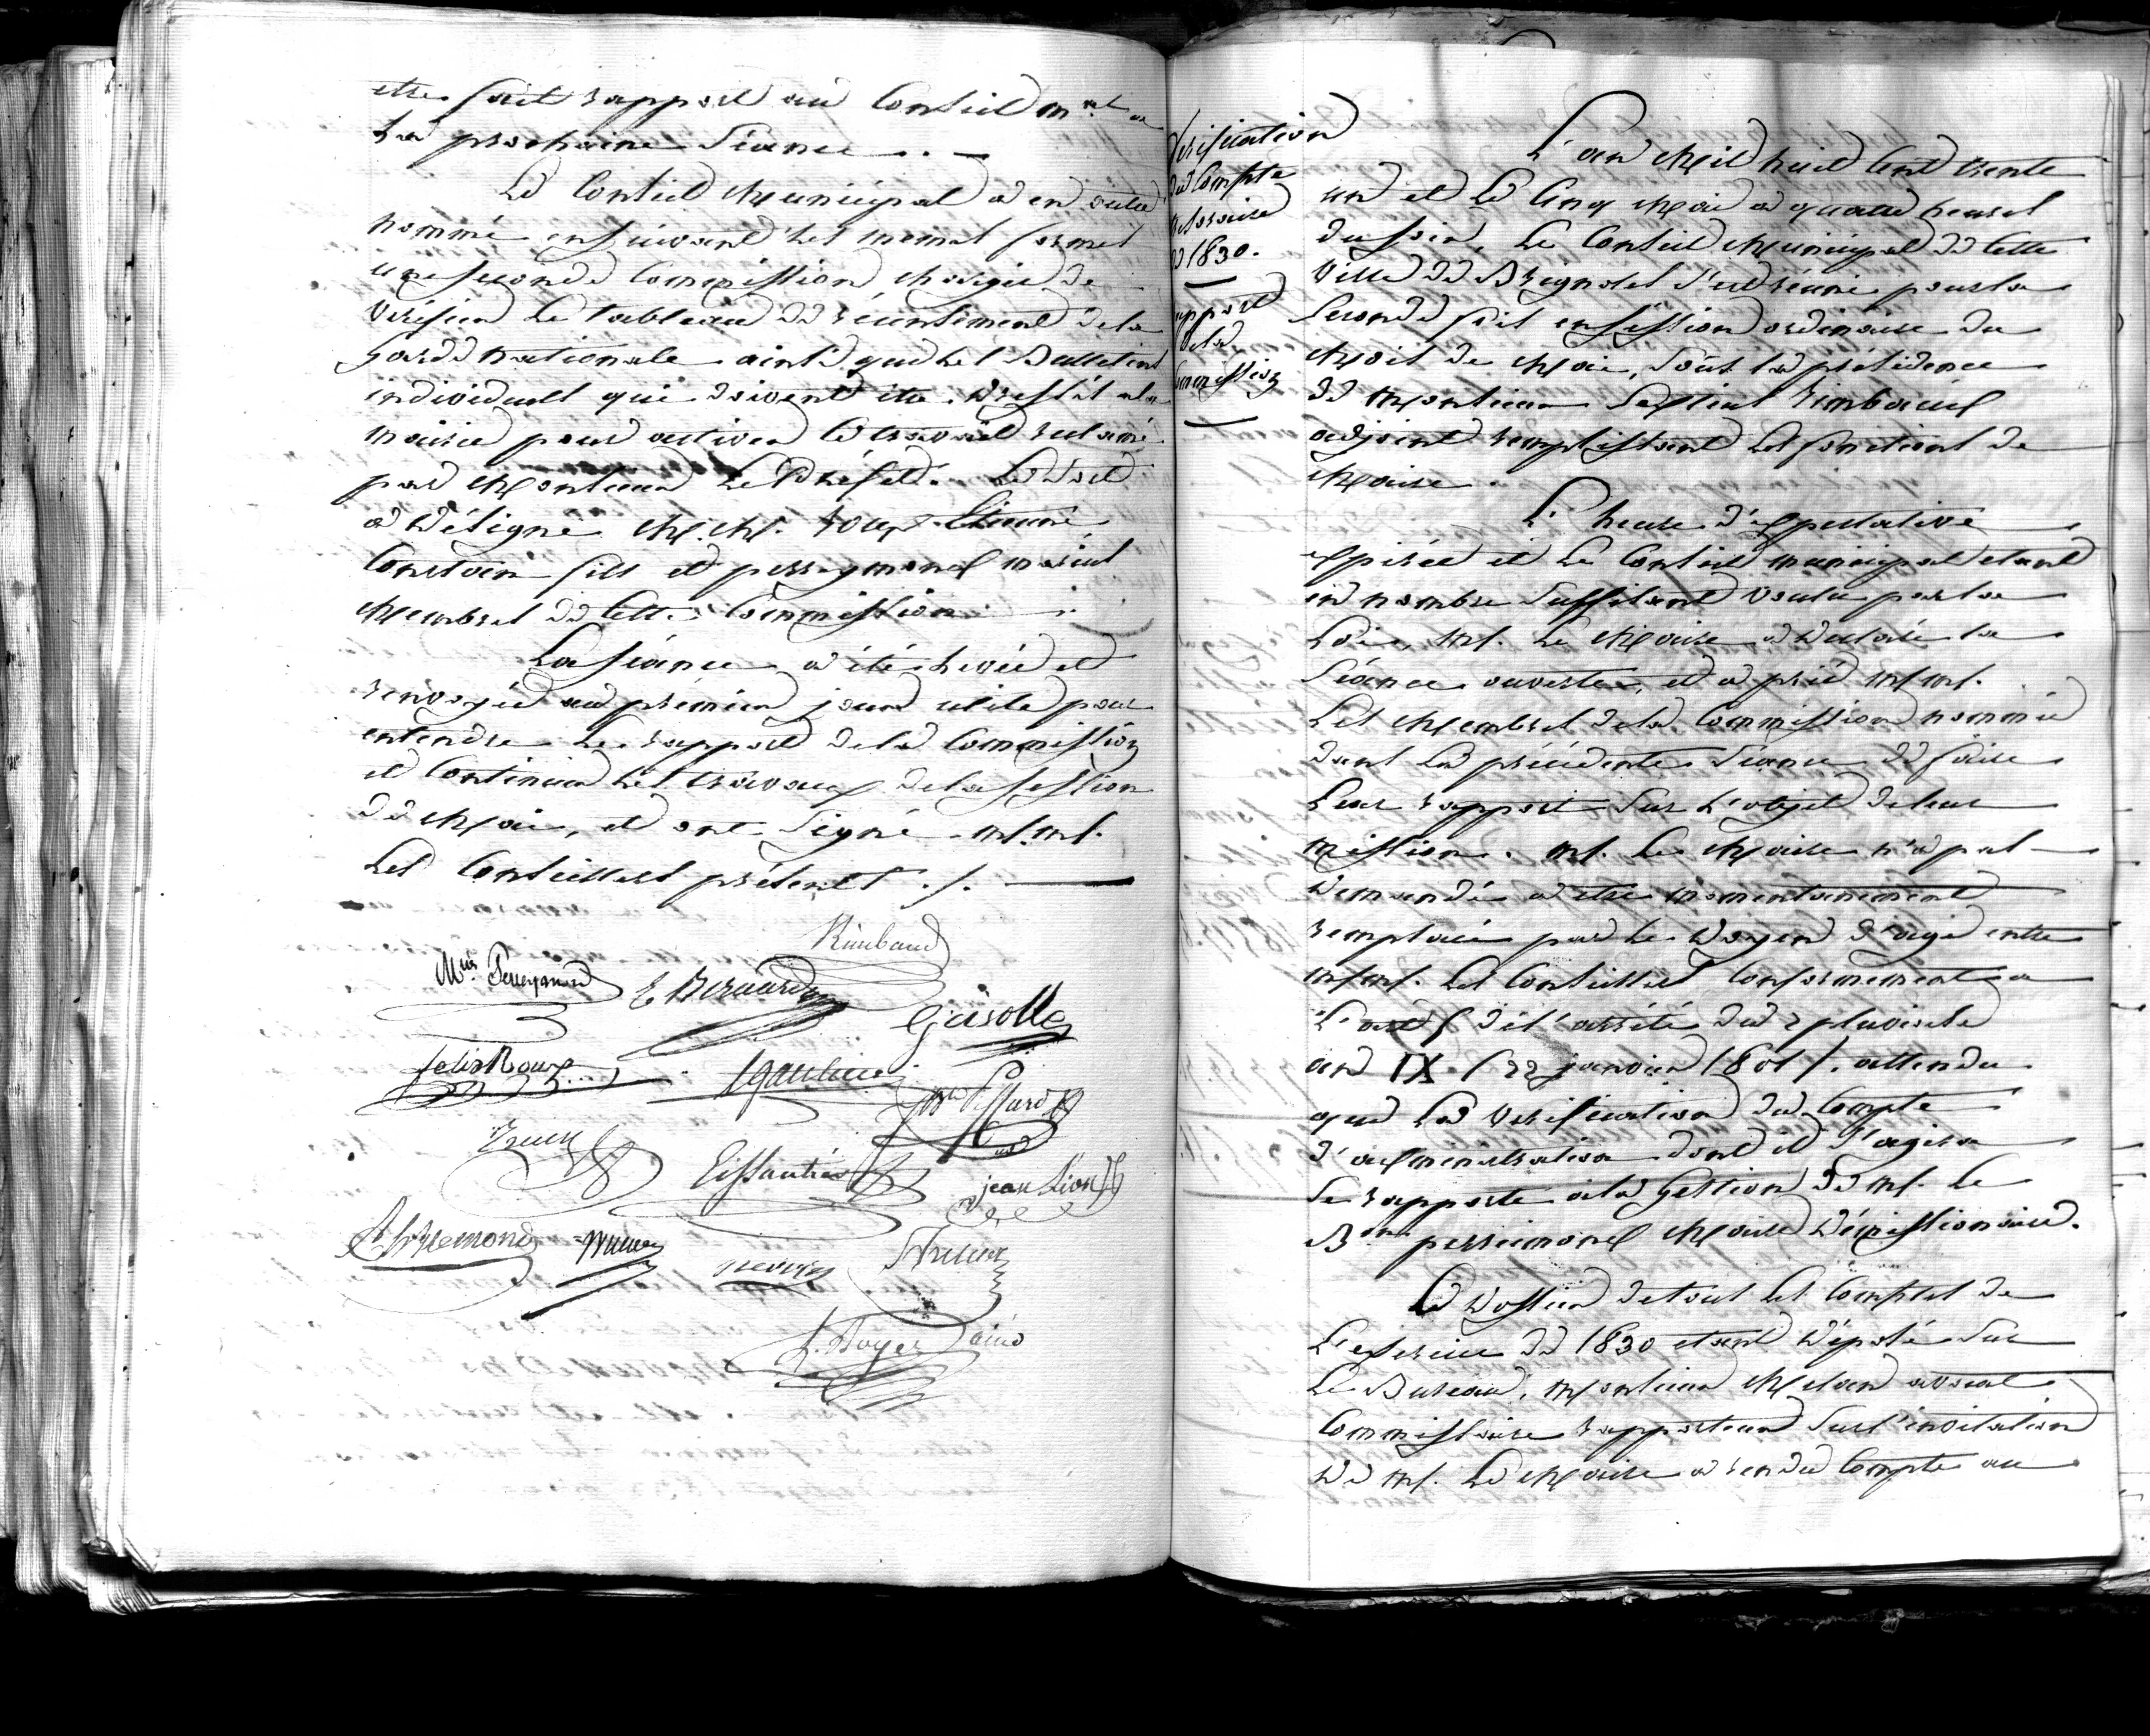 etre fait rapport au Conseil m.al a
la prochaine séance. —
Le Conseil Municipal a en outre
nommé en suivant les memes formes
une seconde Commission chargée de
vérifier le tableau de récensement de la
garde nationale ainsi que les Bulletins
individuels qui doivent être dressés a la
mairie pour activer le travail reclamé
par Monsieur le Préfet. Le sort
a désigné M.M. roux Etienne
Constans fils et perreymond marius
Membres de Cette Commission.
La séance a été levée et
renvoyée au prémier jour utile pour
entendre le rapport de la Commission
et Continuer les travaux de la session
de Mai, et ont signé M.M.
les Conseillers présents ./. —
Rimbaud
M.us Perreymond E Bernard
Grisolle
felix Roux
Eissautier
jean Lion
F. Boyer ainé
Verification
du Compte
de 1830.
rapport
de la
Commission
L'an Mil huit Cent trente
un et le Cinq Mai a quatre heures
du soir, le Conseil Municipal de Cette
ville de Brignoles s'est réuni pour la
seconde fois en session ordinaire du
Mois de Mai, sous la présidence
de Monsieur rimbaud
adjoint remplissant les fonctions de
Maire.
L'heure d'expectative
expirée et le Conseil municipal etant
en nombre suffisant voulu par la
Loi, M. le Maire a declaré la
séance ouverte, et a prié M.M.
les Membres de la Commission nommée
dans la précédente séance de faire
leur rapport sur l'objet de leur
mission. M. le Maire n'a pas
demandé a etre momentanement
remplacé par le doyen d'age entre
M.M. les Conseillers Conformement a
L'art de l'arrêté du 2 pluviose
an IX (22 janvier 1801). attendu
que la verification du Compte
d'administration dont il s'agira
se rapporte à la gestion de M. le
B.on perrimond Maire démissionaire.
Le dossier de tous les Comptes de
L'exercice de 1830 etant déposé sur
le Bureau, Monsieur avocat
Commissaire rapporteur sur l'invitation
de M. le Maire a rendu Compte au